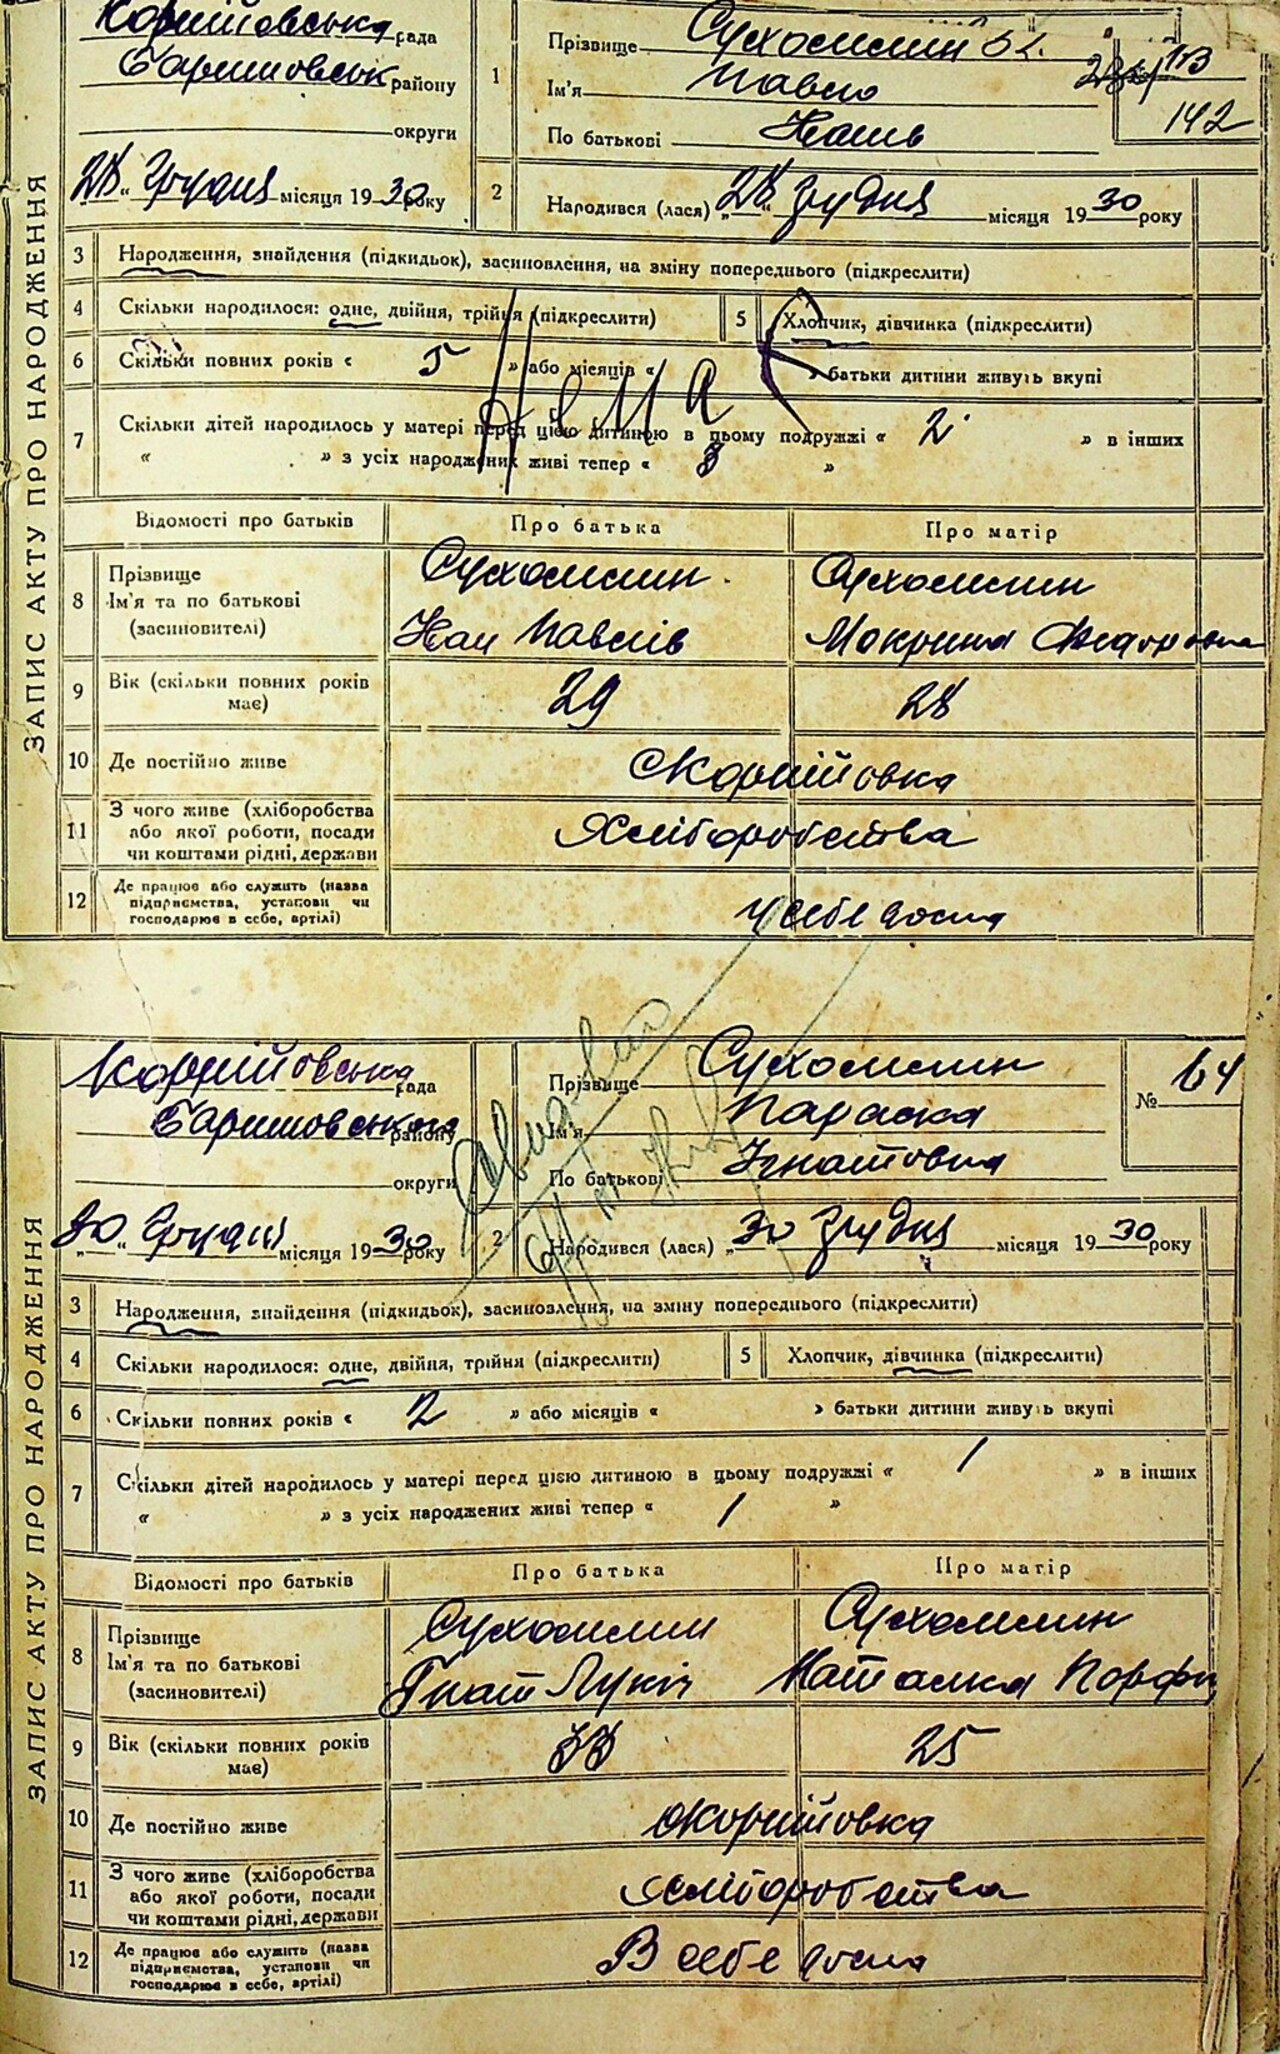 ЗАПИС АКТУ ПРО НАРОДЖЕННЯ
Корнійовська рада
району
округи
28 Грудня місяця 1930 року
1
Прізвище Сухомлин
Ім'я Павло
По батькові
142
2
Народився (лася) „28“ Грудня місяця 1930 року
3 Народження, знайдення (підкидьок), засиновлення, на зміну попереднього (підкреслити)
4 Скільки народилося: одне, двійня, трійня (підкреслити)
5 Хлопчик, дівчинка (підкреслити)
6 Скільки повних років « 5 » або місяців « » батьки дитини живуть вкупі
7 Скільки дітей народилось у матері перед цією дитиною в цьому подружжі « 2 » в інших
« » з усіх народжених живі тепер « 3 »
Нема
Відомості про батьків Про батька Про матір
8 Прізвище
Ім'я та по батькові
(засиновителі)
Сухомлин
Павлів
Сухомлин
Мокрина
9 Вік (скільки повних років має) 29 28
10 Де постійно живе Корнійовка
11 З чого живе (хліборобства
або якої роботи, посади
чи коштами рідні, держави
Хліборобства
12 Де працює або служить (назва
підприємства, установи чи
господарює в себе, артілі)
у себе дома
ЗАПИС АКТУ ПРО НАРОДЖЕННЯ
Корнійовська рада
району
округи
30 Грудня місяця 1930 року
1
Прізвище Сухомлин
Ім'я Параска
По батькові Ігнатовна
№ 64
2
Народився (лася) „30 Грудня місяця 1930 року
3 Народження, знайдення (підкидьок), засиновлення, на зміну попереднього (підкреслити)
4 Скільки народилося: одне, двійня, трійня (підкреслити)
5 Хлопчик, дівчинка (підкреслити)
6 Скільки повних років « 2 » або місяців « » батьки дитини живуть вкупі
7 Скільки дітей народилось у матері перед цією дитиною в цьому подружжі « 1 » в інших
« » з усіх народжених живі тепер « 1 »
Відомості про батьків Про батька Про матір
8 Прізвище
Ім'я та по батькові
(засиновителі)
Сухомлин
Гнат Лукіч
Сухомлин
Наталка Порфи
9 Вік (скільки повних років має) 33 25
10 Де постійно живе Корнійовка
11 З чого живе (хліборобства
або якої роботи, посади
чи коштами рідні, держави
Хліборобства
12 Де працює або служить (назва
підприємства, установи чи
господарює в себе, артілі)
В себе дома